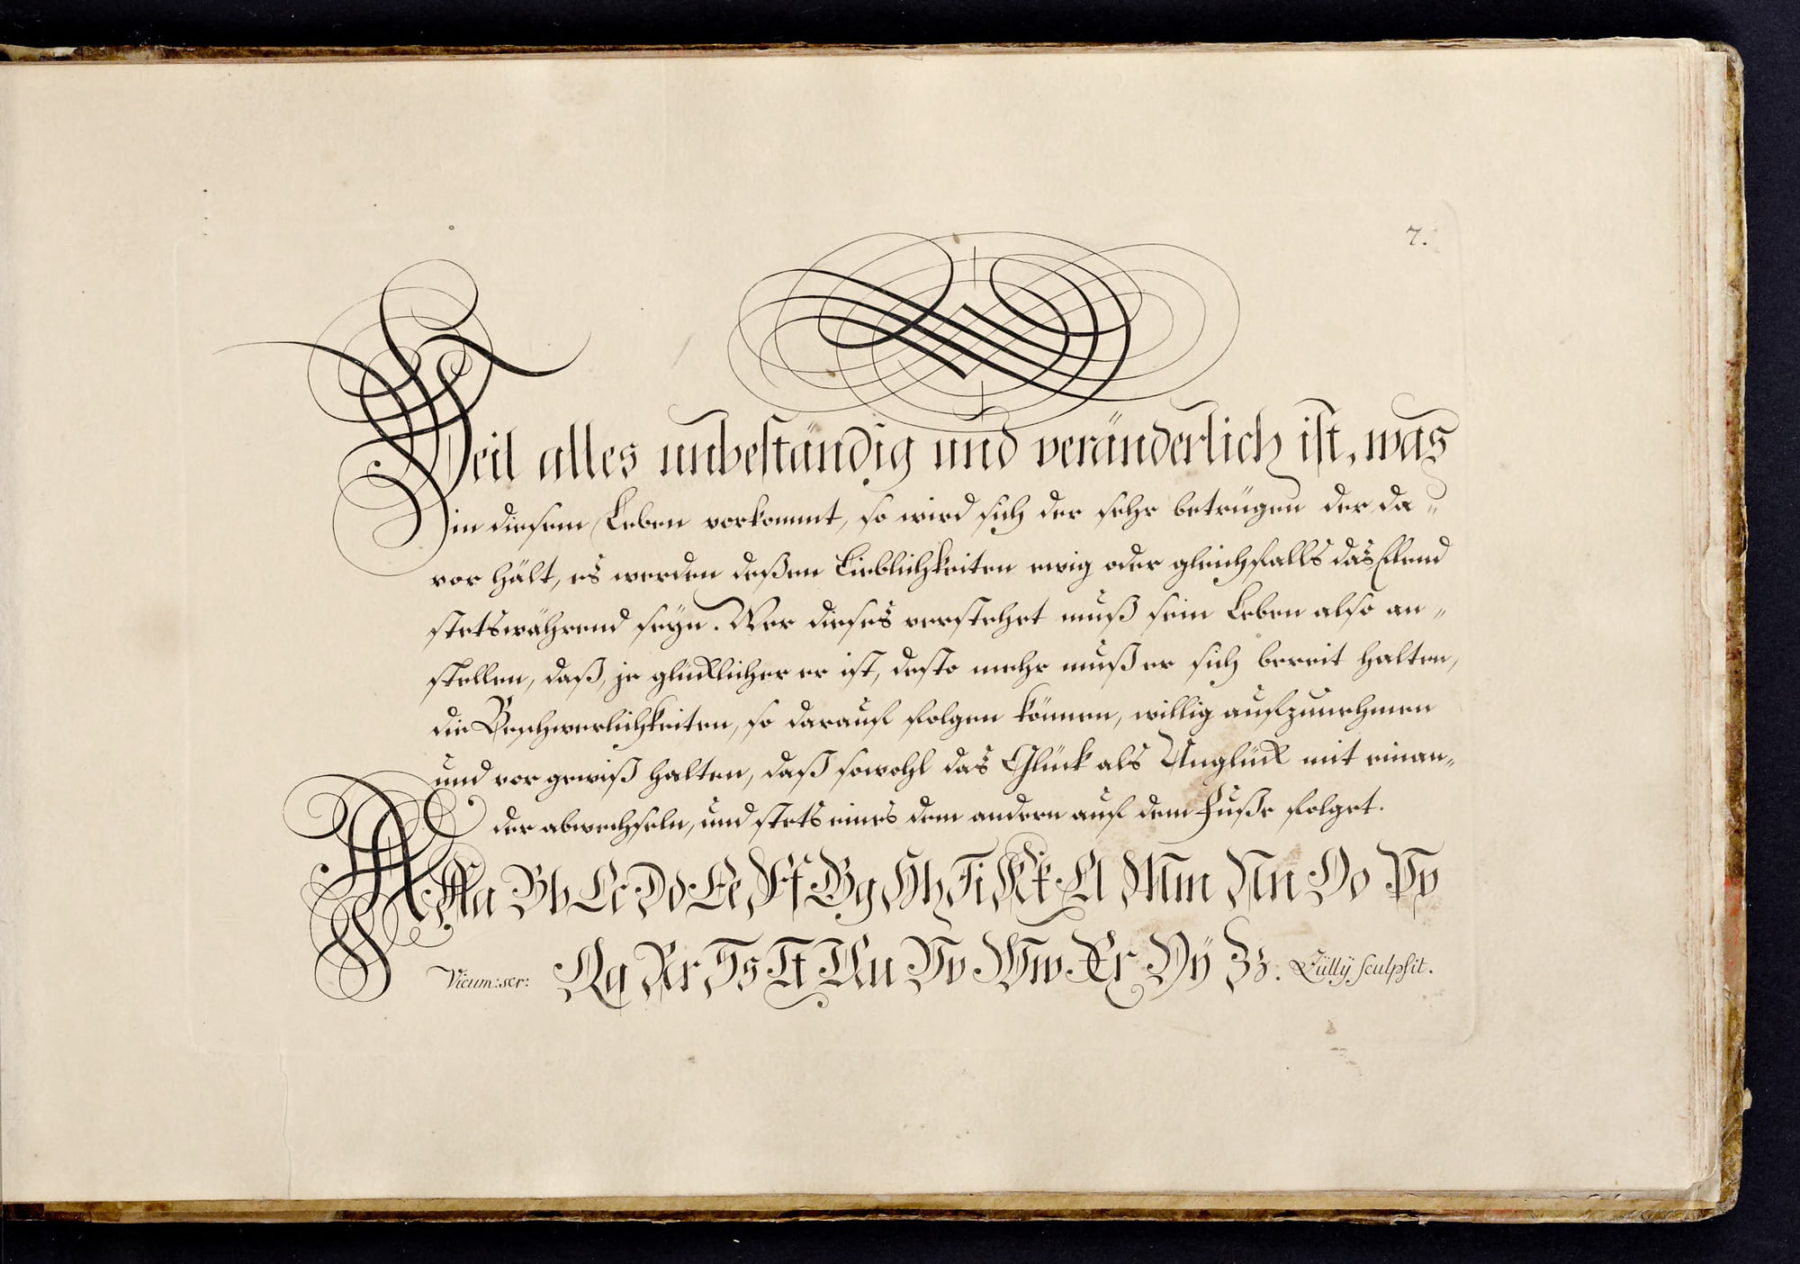 7.
Weil alles unbeständig und veränderlich ist, was
in diesem Leben vorkommt, so wird sich der sehr betrügen der da„
vor hält, es werden deßen Lieblichkeiten ewig oder gleichfalls das Elend
stetswährend seyn. Wer dieses verstehet muß sein Leben also an„
stellen, daß, je glücklicher er ist, desto mehr muß er sich bereit halten,
die Beschwerlichkeiten, so darauf folgen können, willig aufzunehmen
und vor gewiß halten, daß sowohl das Glück als Unglück mit einan„
der abwechseln, und stets eines dem andern auf dem Fuße folget.
A Aa Bb Cc Dd Ee Ff Gg Hh Ii Kk Ll Mm Nn Oo Pp
Vicum: scr: Qq Rr Ss Tt Uu Vv Ww Xx Yÿ Zz. Züllÿ sculpsit.